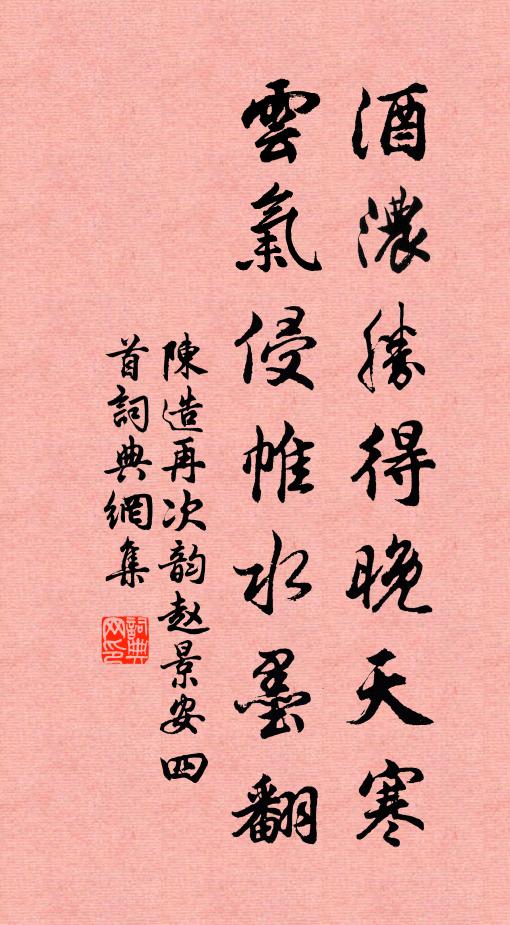 酒濃勝得晚天寒
雲氣侵帷水墨翻
陳造再次韵赵景安四
首詞典網集
詞典網印